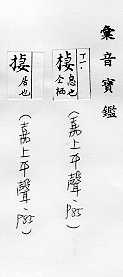 彙音寶鑑
棲 息也 仝栖
(嘉上平聲·P85)
棲 居也
(嘉上平聲·P85)